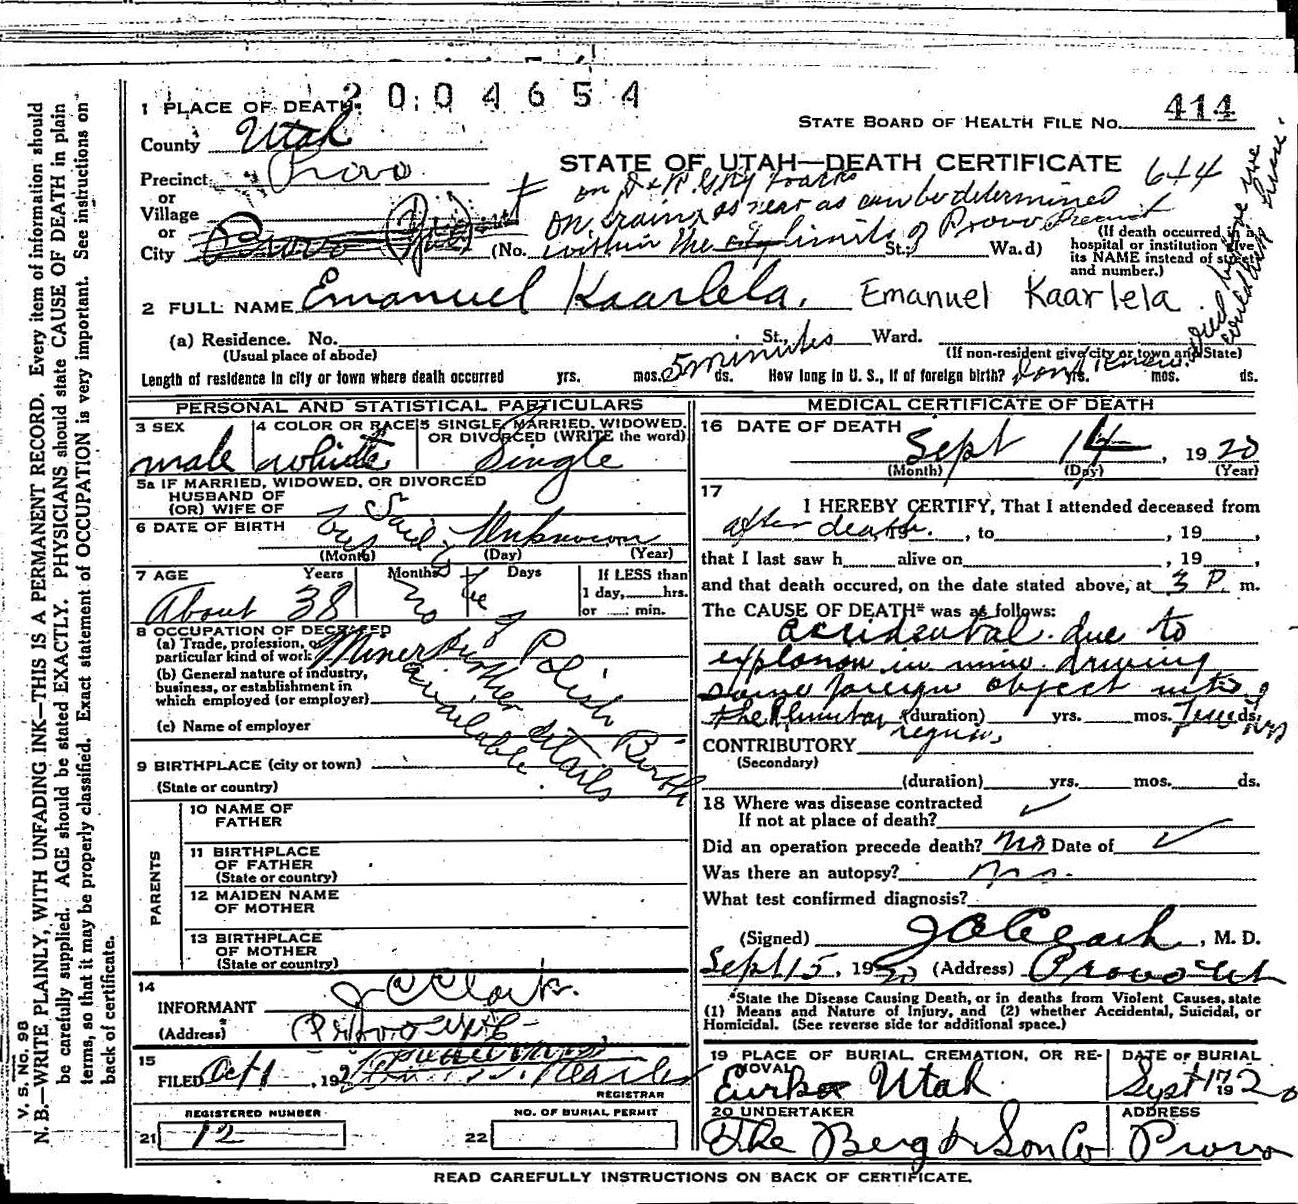 2004654
414
1 PLACE OF DEATH
STATE BOARD OF HEALTH FILE No.
County Utah
STATE OF UTAH—DEATH CERTIFICATE 644
Precinct Provo
or
Village
or
City Provo
on train as near as can be determined
(No. within the city limits of Provo Precinct St.; Wa.d)
(If death occurred in a
hospital or institution give
its NAME instead of street
and number.)
2 FULL NAME Emanuel Kaarlela. Emanuel Kaarlela
(a) Residence. No. St., Ward.
(Usual place of abode)
(If non-resident give city or town and State)
Length of residence in city or town where death occurred yrs. mos. 5 minutes ds. How long in U. S., if of foreign birth? yrs. mos. ds.
died before we could
PERSONAL AND STATISTICAL PARTICULARS
3 SEX
male
4 COLOR OR RACE
white
5 SINGLE, MARRIED, WIDOWED,
OR DIVORCED (WRITE the word)
Single
5a IF MARRIED, WIDOWED, OR DIVORCED
HUSBAND OF
(OR) WIFE OF
6 DATE OF BIRTH Unknown
(Month) (Day) (Year)
7 AGE Years Months Days
About 38
If LESS than
1 day, hrs.
or min.
8 OCCUPATION OF DECEASED
(a) Trade, profession, or
particular kind of work Miner
(b) General nature of industry,
business, or establishment in
which employed (or employer)
(c) Name of employer
9 BIRTHPLACE (city or town)
(State or country)
Said to be of Polish Birth
no further details
available
PARENTS
10 NAME OF
FATHER
11 BIRTHPLACE
OF FATHER
(State or country)
12 MAIDEN NAME
OF MOTHER
13 BIRTHPLACE
OF MOTHER
(State or country)
14
INFORMANT J C Clark.
(Address) Provo Utah
15
FILED Oct 1, 192
REGISTRAR
REGISTERED NUMBER
21 12
NO. OF BURIAL PERMIT
22
MEDICAL CERTIFICATE OF DEATH
16 DATE OF DEATH
Sept 14, 1920
(Month) (Day) (Year)
17
I HEREBY CERTIFY, That I attended deceased from
after death, 19, to , 19 ,
that I last saw h alive on , 19 ,
and that death occured, on the date stated above, at 3 P. m.
The CAUSE OF DEATH* was as follows:
accidental due to
explosion in mine driving
some foreign object into
the (duration) yrs. mos. ds.
region
CONTRIBUTORY
(Secondary)
(duration) yrs. mos. ds.
18 Where was disease contracted
If not at place of death? ✓
Did an operation precede death? No Date of ✓
Was there an autopsy? No.
What test confirmed diagnosis?
(Signed) , M. D.
Sept 15, 1920 (Address) Provo Utah
*State the Disease Causing Death, or in deaths from Violent Causes, state
(1) Means and Nature of Injury, and (2) whether Accidental, Suicidal, or
Homicidal. (See reverse side for additional space.)
19 PLACE OF BURIAL, CREMATION, OR RE-
MOVAL
Eureka Utah
DATE OF BURIAL
Sept 17 1920
20 UNDERTAKER
The Berg & Son Co
ADDRESS
Provo
READ CAREFULLY INSTRUCTIONS ON BACK OF CERTIFICATE.
V. S. No. 98
N. B.—WRITE PLAINLY, WITH UNFADING INK—THIS IS A PERMANENT RECORD. Every item of information should
be carefully supplied. AGE should be stated EXACTLY. PHYSICIANS should state CAUSE OF DEATH in plain
terms, so that it may be properly classified. Exact statement of OCCUPATION is very important. See instructions on
back of certificate.